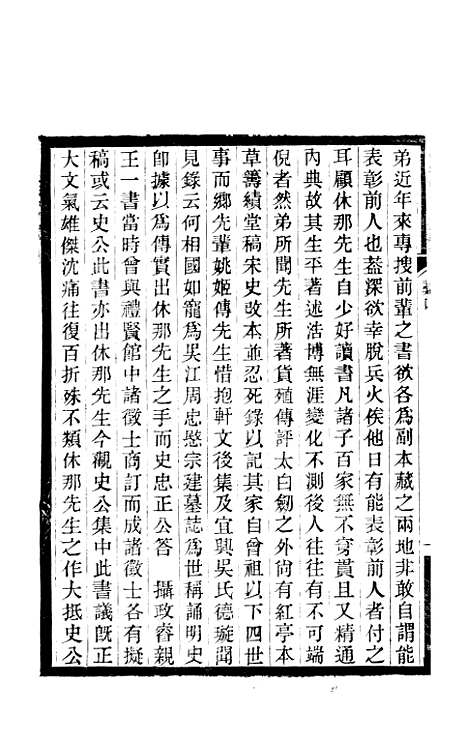 弟近年來專搜前輩之書欲各為副本藏之兩地非敢自謂能
表彰前人也蓋深欲幸脫兵火俟他日有能表彰前人者付之
耳顧休那先生自少好讀書凡諸子百家無不穿貫且又精通
內典故其生平著述浩博無涯變化不測後人往往有不可端
倪者然弟所聞先生所著貨殖傳評太白劒之外尚有紅亭本
草籌績堂稿宋史改本並忍死錄以記其家自曾祖以下四世
事而鄉先輩姚姬傳先生惜抱軒文後集及宜興吳氏德旋聞
見錄云何相國如寵為吳江周忠愍宗建墓誌為世稱誦明史
卽據以為傳實出休那先生之手而史忠正公答　攝政睿親
王一書當時曾與禮賢館中諸徵士商訂而成諸徵士各有擬
稿或云史公此書亦出休那先生今觀史公集中此書議旣正
大文氣雄傑沈痛往復百折殊不類休那先生之作大抵史公